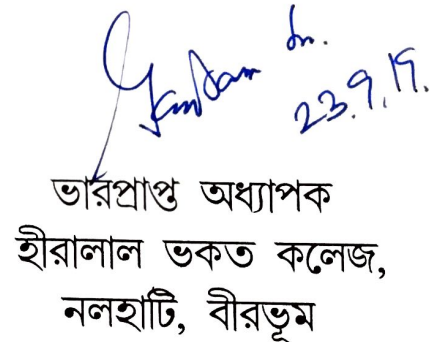 23.9.19.
ভারপ্রাপ্ত অধ্যাপক
হীরালাল ভকত কলেজ,
নলহাটি, বীরভূম